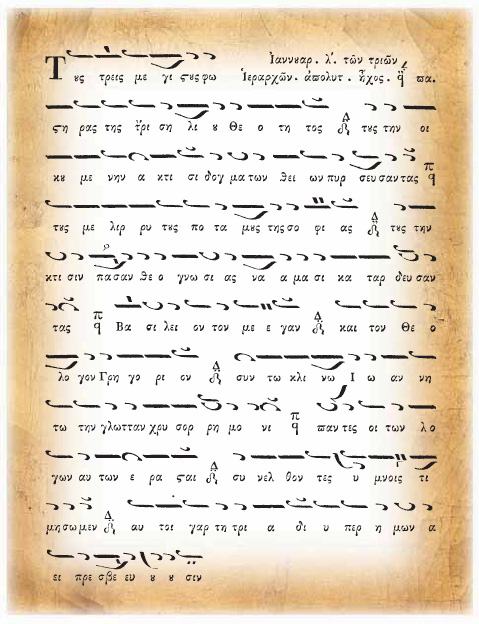 Ἰαννουαρ. λ'. τῶν τριῶν
Τȣς τρεις με γι ϛȣς φω Ἱεραρχῶν. ἀπολυτ. ἦχος. πα.
ϛη ρας της τρι ση λι ȣ Θε ο τη τος Δ τȣς την οι
κȣ με νην α κτι σι δογ μα των θει ων πυρ σευ σαν τας π
τȣς με λιρ ρυ τȣς πο τα μȣς της σο φι ας Δ τȣς την
κτι σιν πα σαν Θε ο γνω σι ας να α μα σι κα ταρ δευ σαν
τας π Βα σι λει ον τον με ε γαν Δ και τον Θε ο
λο γον Γρη γο ρι ον Δ συν τω κλι νω Ι ω αν νη
τω την γλωτ ταν χρυ σορ ρη μο νι π παν τες οι των λο
γων αυ των ε ρα ϛαι Δ συ νελ θον τες υ μνοις τι
μη σω μεν Δ αυ τοι γαρ τη τρι α δι υ περ η μων α
ει πρε σβε ευ ȣ ȣ σιν